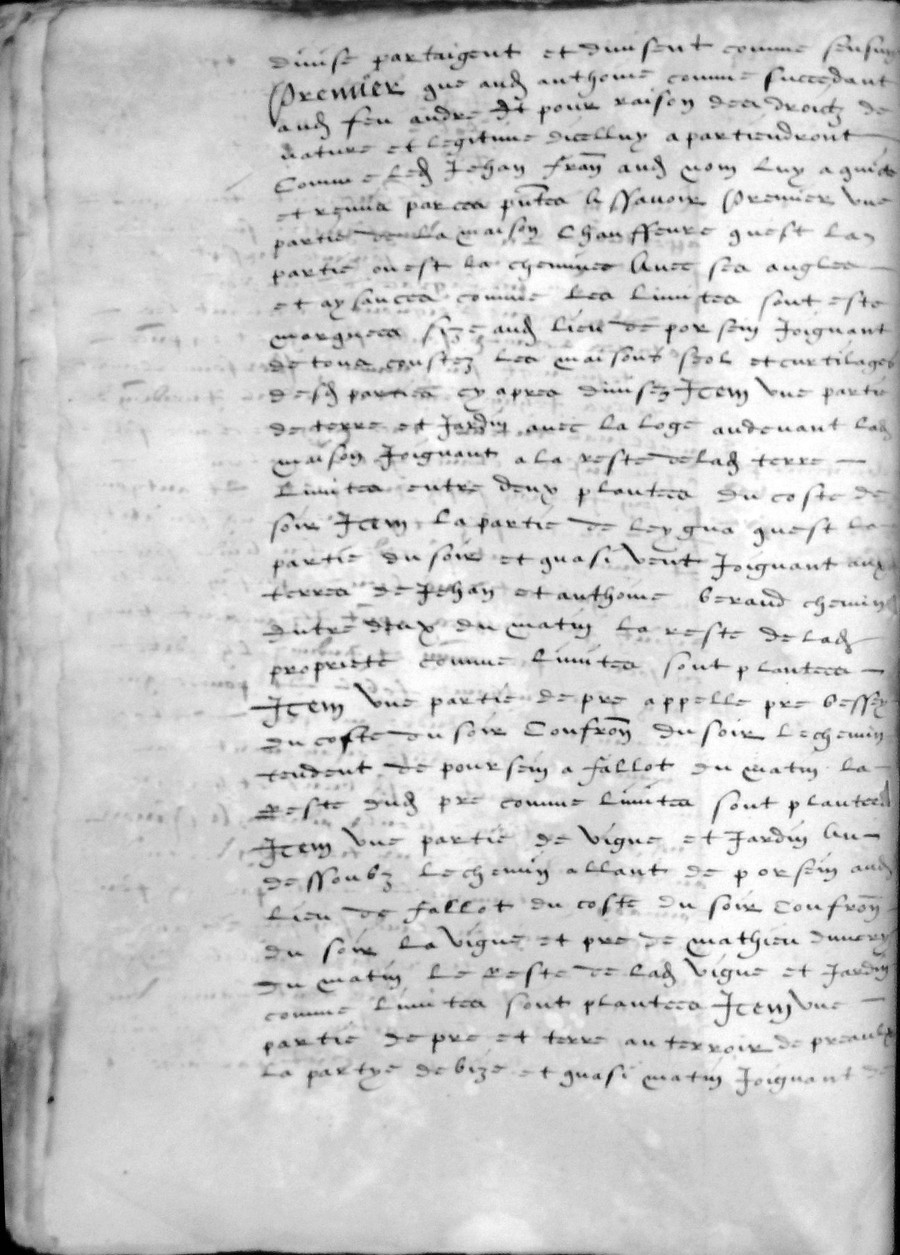 divise partaigent et divisent comme sensuy
Premier que aud anthoine comme succedant
aud feu andre et pour raison des droictz de
nature et legitime dicelluy apartiendront
Comme led Jehan fran aud nom luy a quicte
et remis par ces pntes assavoir Premier une
partie de la maison Chauffeure quest la
partie ou est la cheminee Avec ses angles
et aysances comme les limites sont este
marquees size aud lieu de porsein Joignant
de tous coustez les maisons seol et curtilages
desd parties cy apres divisez Item une partie
de terre et Jardin avec la loge audevant lad
maison Joignant a la reste de lad terre
limites entre deux plantees du coste de
soir Item la partie de leygua quest la
partie du soir et quasi vent Joignant aux
terres de Jehan et anthoine beraud chemin
dutre deux du matin la reste de lad
propriete comme limites sont plantees
Item une partie de pre appelle pre bessey
du coste du soir Confron du soir le chemin
tendent de poursein a fallot du matin la
Reste dud pre comme limites sont plantees
Item une partie de vigne et Jardin au
dessoubz le chemin allant de porsein aud
lieu de fallot du coste du soir Confron
du soir la vigne et pre de mathieu duvery
du matin le Reste de lad vigne et Jardin
comme limites sont plantees Item une
partie de pre et terre au terroir de preaulx
la partye de bize et quasi matin Joignant de